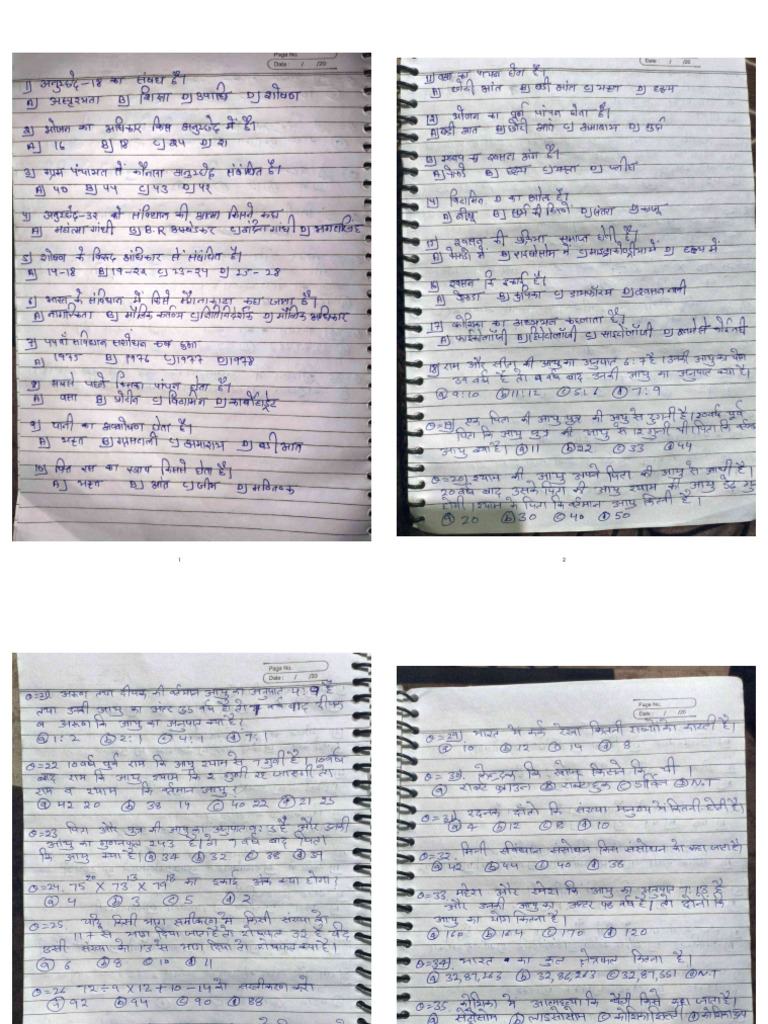 Page No.
Date : / /20
1) अनुच्छेद-18 का संबंध है।
A) अस्पृश्यता B) शिक्षा C) उपाधि D) शोषण
2) भोजन का अधिकार किस अनुच्छेद में है।
A) 16 B) 18 C) 24 D) 21
3) ग्राम पंचायत से कौनसा अनुच्छेद संबंधित है।
A) 40 B) 44 C) 43 D) 42
4) अनुच्छेद-32 को संविधान की आत्मा किसने कहा
A) महात्मा गांधी B) B.R अम्बेडकर C) इंदिरा गांधी D) भगतसिंह
5) शोषण के विरुद्ध अधिकार से संबंधित है।
A) 14-18 B) 19-22 C) 23-24 D) 25-28
6) भारत के संविधान में किसे मैग्नाकार्टा कहा जाता है।
A) नागरिकता B) मौलिक कर्तव्य C) नितिनिर्देशक D) मौलिक अधिकार
7) संविधान संशोधन कब हुआ
A) 1975 B) 1976 C) 1977 D) 1978
8) सबसे पहले किसका पाचन होता है।
A) वसा B) प्रोटीन C) विटामिन D) कार्बोहाइड्रेट
9) पानी का अवशोषण होता है।
A) B) ग्रासनली C) आमाशय D) बडी आंत
10) पित्त रस का स्त्राव किससे होता है।
A) B) आंत C) D) मस्तिष्क
1
Date : / /20
11) वसा का पाचन होता है।
A) छोटी आंत B) बडी आंत C) D) हृदय
12) भोजन का पूर्ण पाचन होता है।
A) बडी आंत B) छोटी आंत C) आमाशय D)
13) श्वसन अंग है।
A) फेफडे B) हृदय C) D) प्लीहा
14) विटामिन D का स्रोत है।
A) नींबू B) सूर्य की किरणे C) संतरा D) काजू
15) श्वसन की प्रक्रिया समाप्त होती है।
A) फेफडे में B) राइबोसोम में C) माइटोकॉन्ड्रिया में D) हृदय में
16) श्वसन कि इकाई है।
A) फेफडा B) कुपिका C) डायफ्राम D) श्वसन नली
17) कोशिका का अध्ययन कहलाता है।
A) B) हिस्टोलॉजी C) साइटोलॉजी D)
18) राम और सीता की आयु का अनुपात 5:7 है। उनकी आयु का योग
वर्ष है तो 9 वर्ष बाद उनकी आयु का अनुपात क्या है।
a) 9:10 b) 11:12 c) 5:6 d) 7:9
Q=19) एक पिता की आयु पुत्र की आयु से दुगुनी है। 20 वर्ष पूर्व
पिता कि आयु पुत्र की आयु से 12 गुनी थी पिता कि
आयु क्या है। a) 11 b) 22 c) 33 d) 44
Q=20) श्याम की आयु अपने पिता की आयु से आधी है।
20 वर्ष बाद उसके पिता की आयु श्याम की आयु डेढ गु
होगी। श्याम के पिता कि वर्तमान आयु कितनी है।
a) 20 b) 30 c) 40 d) 50
2
Page No.
Date : / /20
Q=21. अरुण तथा दीपक की वर्तमान आयु का अनुपात 4:9 है
तथा उनकी आयु का अन्तर 35 वर्ष है तो 7 वर्ष बाद दीपक
व अरुण कि आयु का अनुपात क्या है।
a) 1:2 b) 2:1 c) 4:1 d) 7:1
Q=22 10 वर्ष पूर्व राम कि आयु श्याम से 7 गुनी है। 10 वर्ष
बाद राम कि आयु श्याम कि 2 गुनी रह जाएगी तो
राम व श्याम कि वर्तमान आयु?
a) 42 20 b) 38 14 c) 40 22 d) 21 25
Q=23 पिता और पुत्र की आयु का अनुपात 9:3 है और उनकी
आयु का गुणनफल 243 है। तो 7 वर्ष बाद पिता
कि आयु क्या है। a) 34 b) 32 c) 38 d) 39
Q=24. 75²⁰ × 73¹³ × 79¹⁸ का इकाई अंक क्या होगा?
a) 4 b) 3 c) 5 d) 2
Q=25. यदि किसी भाग समीकरण में किसी संख्या को
117 से भाग दिया जाता है तो शेषफल 32 है यदि
इसी संख्या को 13 से भाग दिया तो शेषफल क्या है।
a) 6 b) 8 c) 10 d) 11
Q=26 72÷9×12+10-14 को सरलीकरण करो
a) 92 b) 94 c) 90 d) 88
Page No.
Date : / /20
Q=29) भारत में कर्क रेखा कितनी राज्यो को काटती है।
a) 10 b) 12 c) 14 d) 8
Q=30. केन्द्रक कि खोज किसने कि थी।
a) राबर्ट ब्राउन b) राबर्ट हुक c) डार्विन d) N.T
Q=31. रदनक दांतो कि संख्या मनुष्य में कितनी होती है।
a) 4 b) 12 c) 8 d) 10
Q=32. मिनी संविधान संसोधन किस संसोधन को कहा जाता है।
a) 42 b) 44 c) 40 d) 38
Q=33. और रमेश कि आयु का अनुपात 7:13 है
और उनकी आयु का अन्तर 48 वर्ष है। तो दोनो कि
आयु का योग कितना है।
a) 160 b) 164 c) 170 d) 120
Q=34) भारत का कुल क्षेत्रफल कितना है।
a) 32,87,263 b) 32,86,263 c) 32,87,551 d) N.T
Q=35. कोशिका में आत्महत्या कि थैली किसे कहा जाता है।
a) सेंट्रोसोम b) लाइसोसोम c) कोशिका झिल्ली d) कोशिका द्रव्य